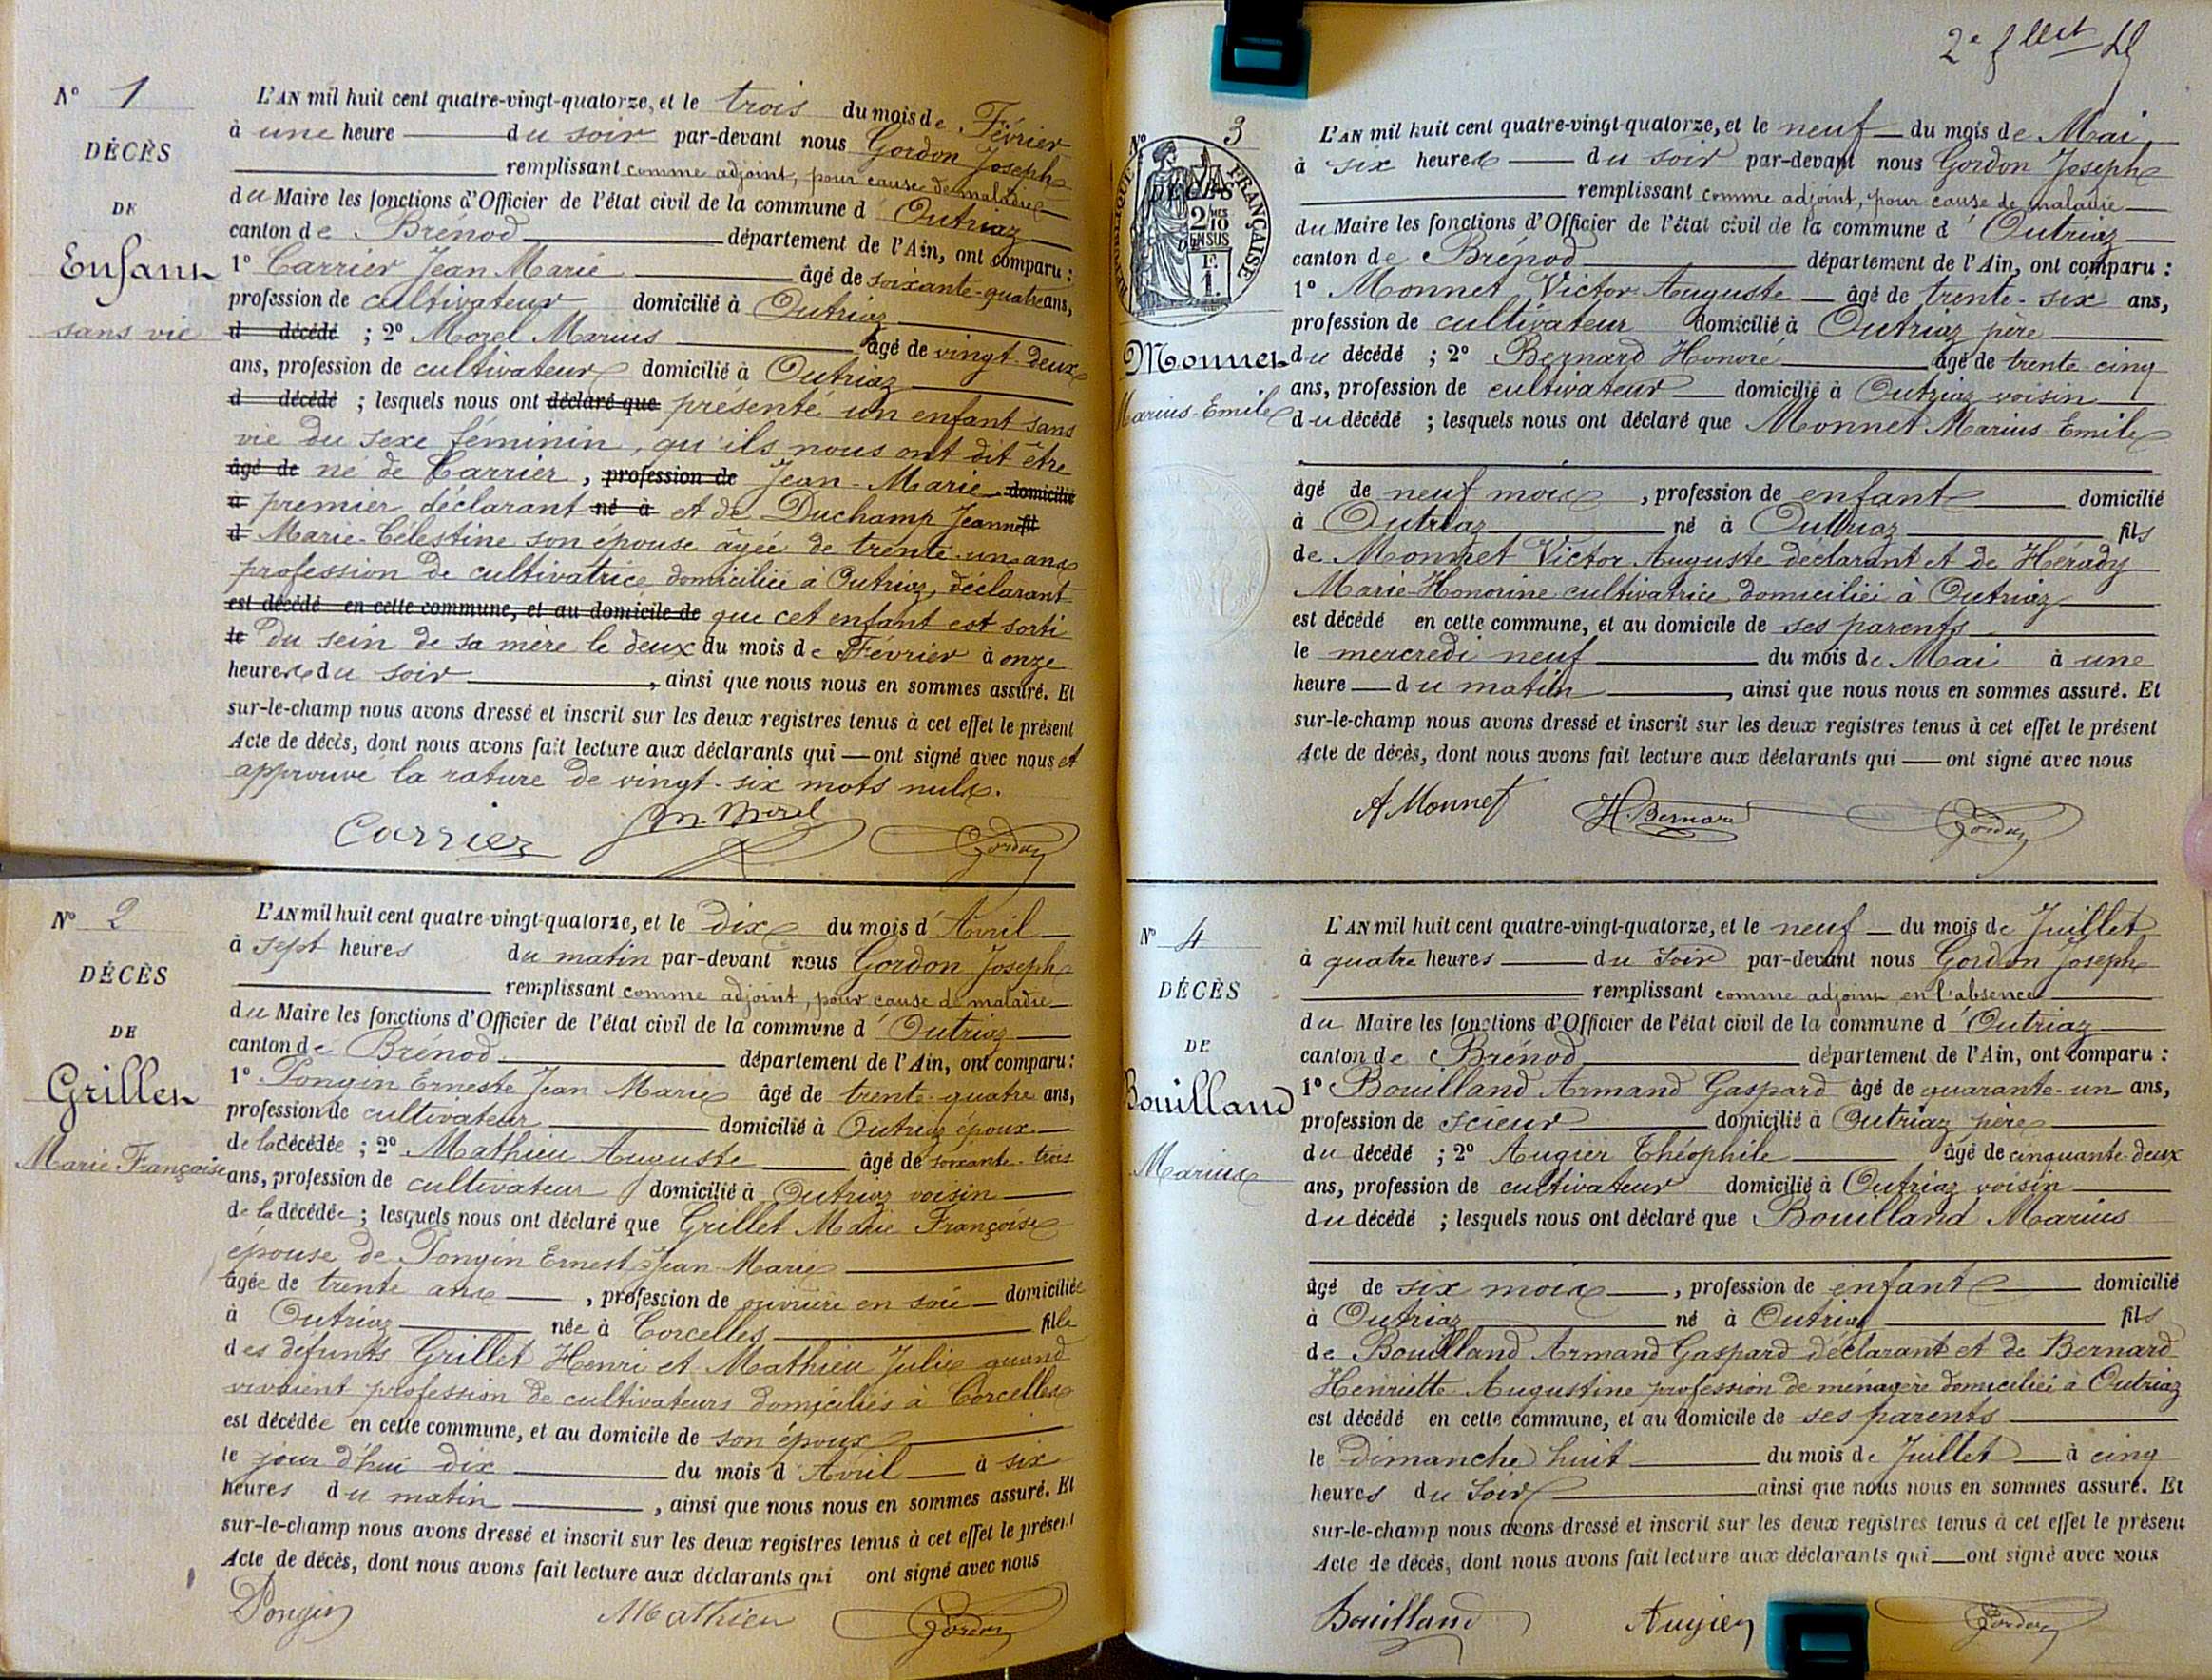 N° 1
DÉCÈS
DE
Enfant
sans vie
L'AN mil huit cent quatre-vingt-quatorze, et le trois du mois de Février
à une heure du soir par-devant nous Gordon Joseph
remplissant comme adjoint, pour cause de maladie
du Maire les fonctions d'Officier de l'état civil de la commune d'Outriaz
canton de Brénod département de l'Ain, ont comparu :
1° Carrier Jean Marie âgé de soixante-quatre ans,
profession de cultivateur domicilié à Outriaz
d décédé ; 2° Morel Marius âgé de vingt-deux
ans, profession de cultivateur domicilié à Outriaz
d décédé ; lesquels nous ont déclaré que présenté un enfant sans
vie du sexe féminin, qu'ils nous ont dit être
âgé de né de Carrier, profession de Jean-Marie domicilié
à premier déclarant né à et de Duchamp Jeanne fil
d Marie-Célestine son épouse âgée de trente-un ans
profession de cultivatrice domiciliée à Outriaz, déclarant
est décédé en cette commune, et au domicile de que cet enfant est sorti
le du sein de sa mère le deux du mois de Février à onze
heures du soir, ainsi que nous nous en sommes assuré. Et
sur-le-champ nous avons dressé et inscrit sur les deux registres tenus à cet effet le présent
Acte de décès, dont nous avons fait lecture aux déclarants qui ont signé avec nous et
approuvé la rature de vingt-six mots nuls.
Carrier M. Morel Gordon
N° 2
DÉCÈS
DE
Grillet
Marie Françoise
L'AN mil huit cent quatre-vingt-quatorze, et le dix du mois d'Avril
à sept heures du matin par-devant nous Gordon Joseph
remplissant comme adjoint, pour cause de maladie
du Maire les fonctions d'Officier de l'état civil de la commune d'Outriaz
canton de Brénod département de l'Ain, ont comparu :
1° Pongin Erneste Jean Marie âgé de trente-quatre ans,
profession de cultivateur domicilié à Outriaz époux
de la décédée ; 2° Mathieu Auguste âgé de soixante-trois
ans, profession de cultivateur domicilié à Outriaz voisin
de la décédée ; lesquels nous ont déclaré que Grillet Marie Françoise
épouse de Pongin Ernest Jean-Marie
âgée de trente ans, profession de ouvrière en soie domiciliée
à Outriaz née à Corcelles fille
des défunts Grillet Henri et Mathieu Julie quand
vivaient profession de cultivateurs domiciliés à Corcelles
est décédée en cette commune, et au domicile de son époux
le jour d'hui dix du mois d'Avril à six
heures du matin, ainsi que nous nous en sommes assuré. Et
sur-le-champ nous avons dressé et inscrit sur les deux registres tenus à cet effet le présent
Acte de décès, dont nous avons fait lecture aux déclarants qui ont signé avec nous
Pongin Mathieu Gordon
2e
N° 3
RÉPUBLIQUE FRANÇAISE
DÉCÈS
2/10 EN SUS
DE
1 F.
Monnet
Marius-Emile
L'AN mil huit cent quatre-vingt-quatorze, et le neuf du mois de Mai
à six heures du soir par-devant nous Gordon Joseph
remplissant comme adjoint, pour cause de maladie
du Maire les fonctions d'Officier de l'état civil de la commune d'Outriaz
canton de Brénod département de l'Ain, ont comparu :
1° Monnet Victor Auguste âgé de trente-six ans,
profession de cultivateur domicilié à Outriaz père
du décédé ; 2° Bernard Honoré âgé de trente cinq
ans, profession de cultivateur domicilié à Outriaz voisin
du décédé ; lesquels nous ont déclaré que Monnet Marius-Emile
âgé de neuf mois, profession de enfant domicilié
à Outriaz né à Outriaz fils
de Monnet Victor Auguste déclarant et de Hérady
Marie-Honorine cultivatrice domiciliée à Outriaz
est décédé en cette commune, et au domicile de ses parents
le mercredi neuf du mois de Mai à une
heure du matin, ainsi que nous nous en sommes assuré. Et
sur-le-champ nous avons dressé et inscrit sur les deux registres tenus à cet effet le présent
Acte de décès, dont nous avons fait lecture aux déclarants qui ont signé avec nous
A Monnet H. Bernard Gordon
N° 4
DÉCÈS
DE
Bouilland
Marius
L'AN mil huit cent quatre-vingt-quatorze, et le neuf du mois de Juillet
à quatre heures du soir par-devant nous Gordon Joseph
remplissant comme adjoint en l'absence
du Maire les fonctions d'Officier de l'état civil de la commune d'Outriaz
canton de Brénod département de l'Ain, ont comparu :
1° Bouilland Armand Gaspard âgé de quarante-un ans,
profession de scieur domicilié à Outriaz père
du décédé ; 2° Augier Théophile âgé de cinquante-deux
ans, profession de cultivateur domicilié à Outriaz voisin
du décédé ; lesquels nous ont déclaré que Bouilland Marius
âgé de six mois, profession de enfant domicilié
à Outriaz né à Outriaz fils
de Bouilland Armand Gaspard déclarant et de Bernard
Henriette Augustine profession de ménagère domiciliée à Outriaz
est décédé en cette commune, et au domicile de ses parents
le dimanche huit du mois de Juillet à cinq
heures du soir ainsi que nous nous en sommes assuré. Et
sur-le-champ nous avons dressé et inscrit sur les deux registres tenus à cet effet le présent
Acte de décès, dont nous avons fait lecture aux déclarants qui ont signé avec nous
Bouilland Augier Gordon